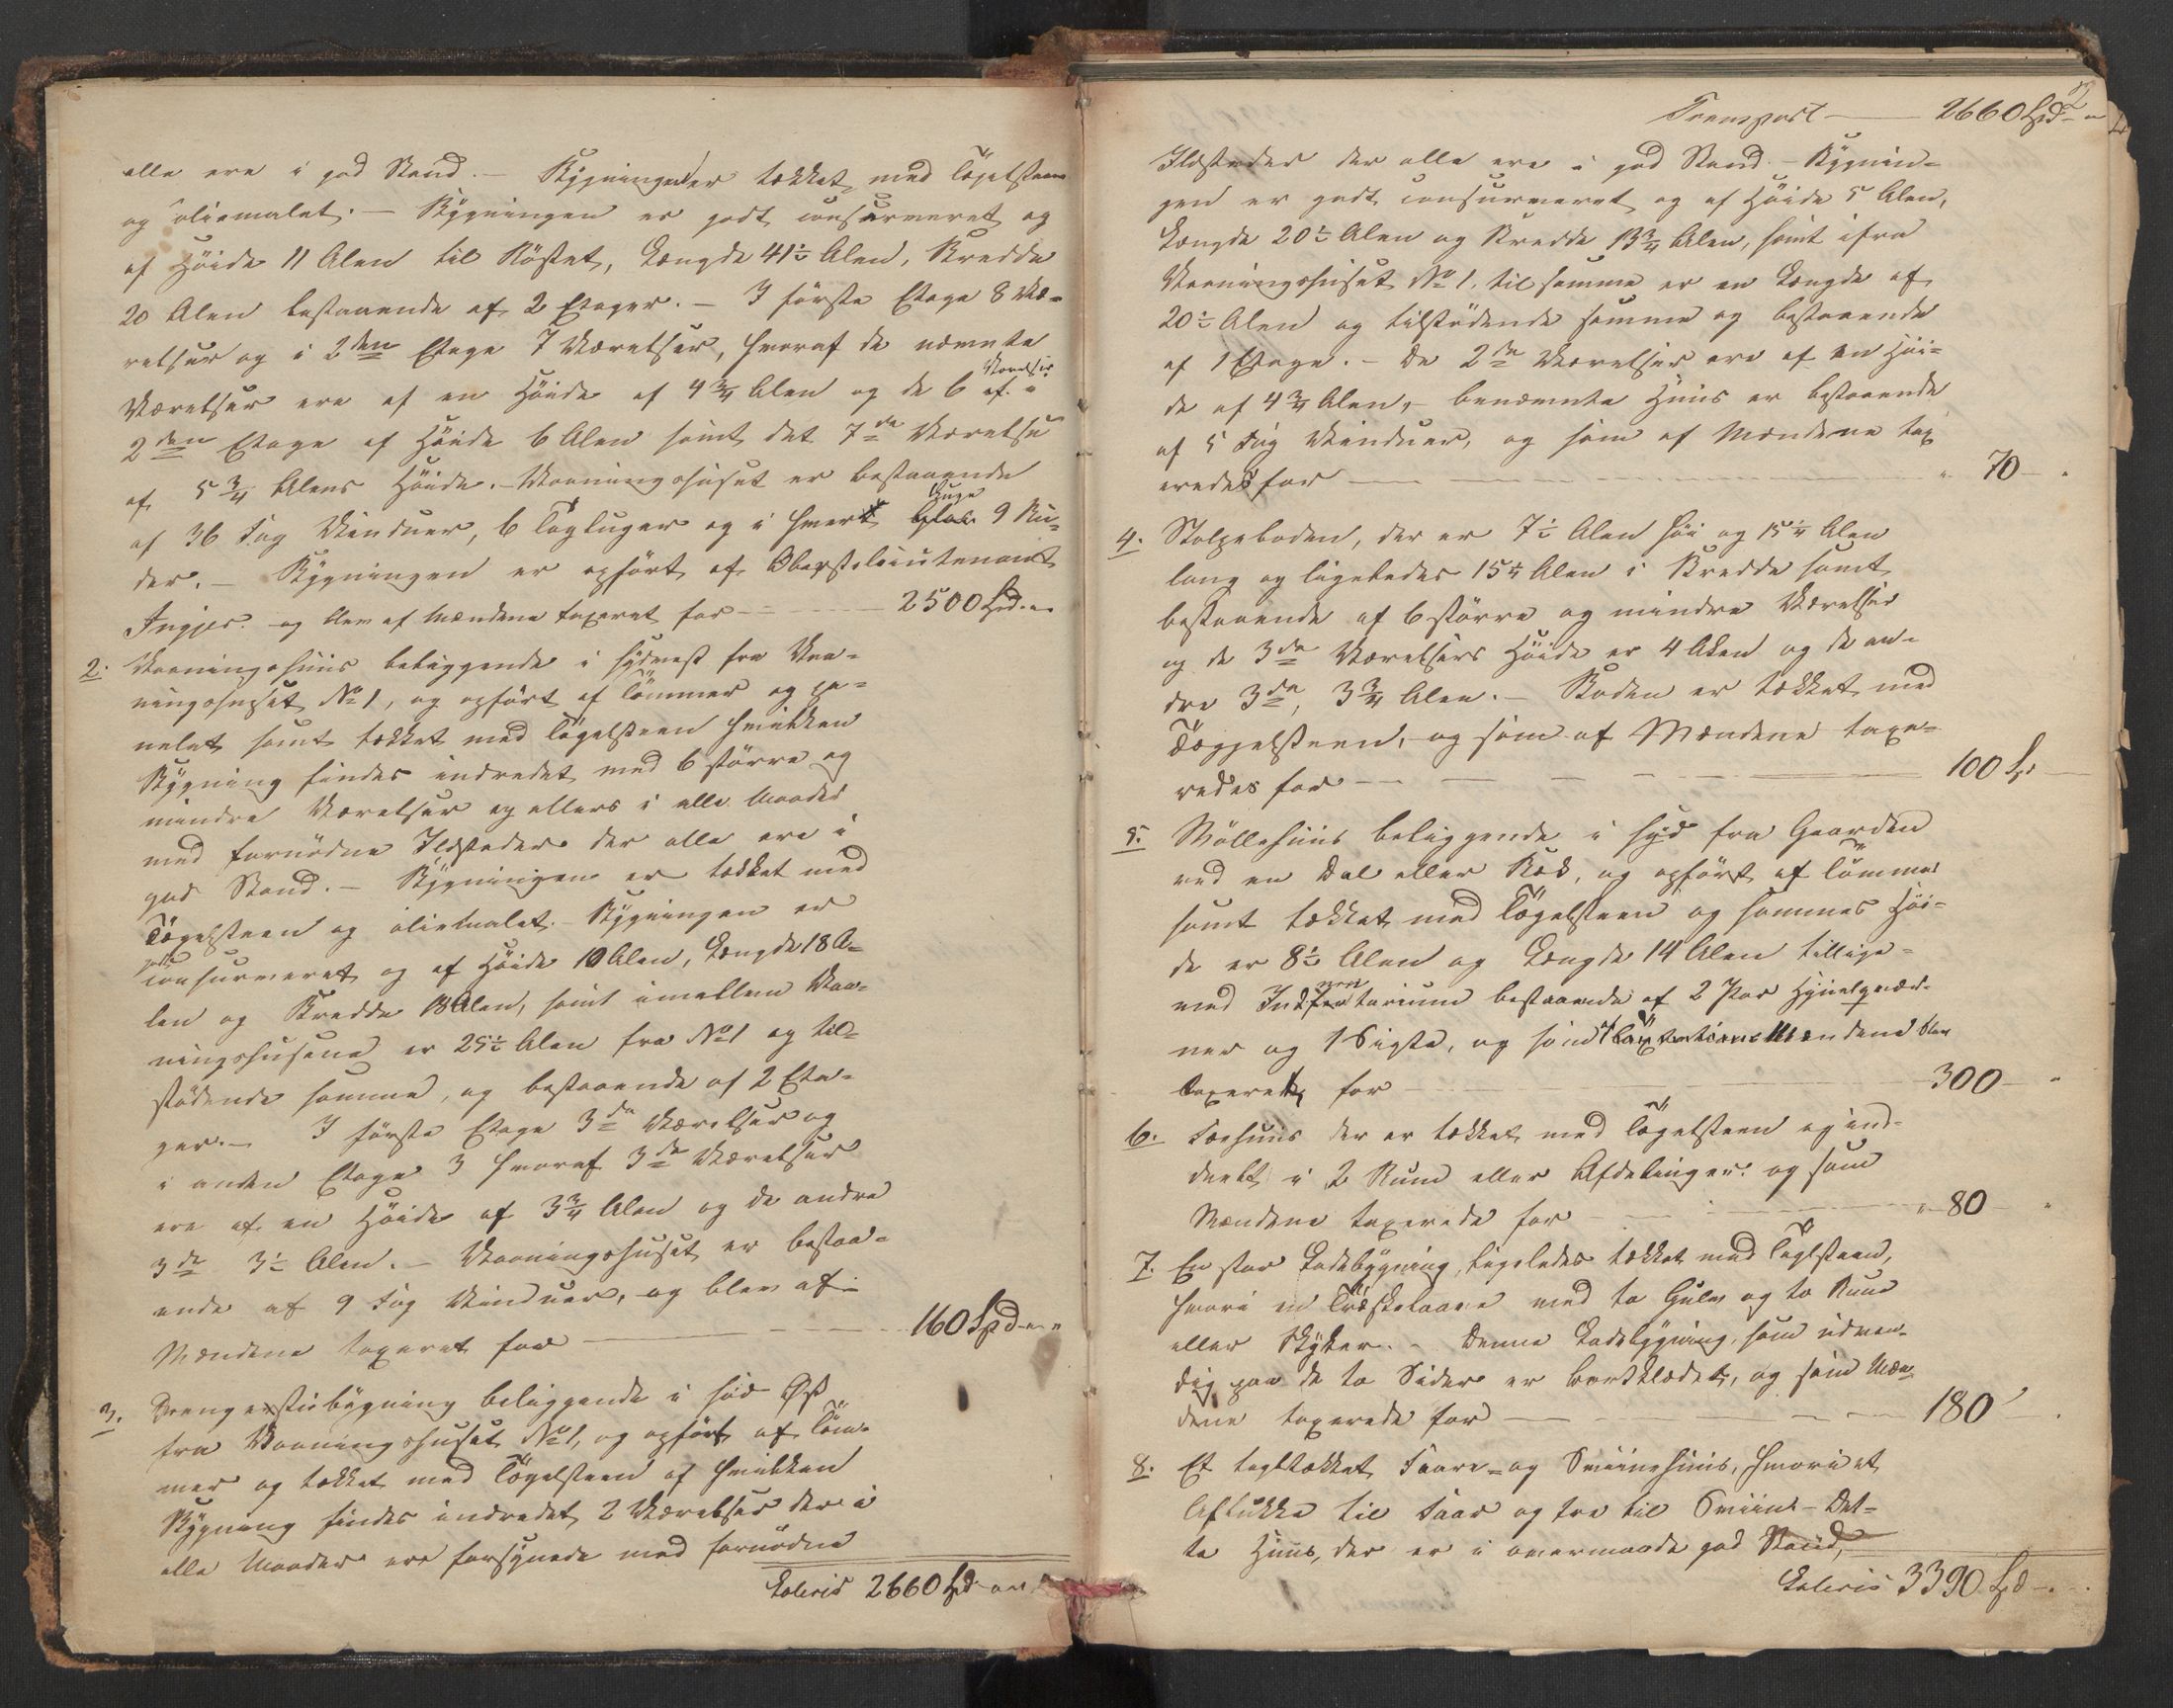 alle ere i god Stand. — Bygningen er tækket med Tögelsteen
og oliemalet. — Bygningen er godt conserveret og
af Höide 11 Alen til Röstet, Længde 41½ Alen, Bredde
20 Alen bestaaende af 2 Etager. — I förste Etage 8 Væ-
relser og i 2den Etage 7 Værelser, hvoraf de nævnte
Værelser ere af en Höide af 4¾ Alen og de 6 Værelser af
2den Etage af Höide 6 Alen samt det 7de Værelse
af 5¾ Alens Höide. — Vaaningshuset er bestaaende
af 36 Fag Vinduer, 6 Tagluger og i hvert Luge 9 Ru-
der. — Bygningen er opfört af Oberstlieutenant
Ingier og blev af Mændene taxeret for — 2500 Spd. "
2. Vaaningshuus beliggende i sydvest fra Vaa-
ningshuset No 1, og opfört af Tömmer og pa-
nelet samt tækket med Tögelsteen hvilken
Bygning findes indredet med 6 större og
mindre Værelser og ellers i alle Maader
med fornödne Ildsteder der alle ere i
god Stand. — Bygningen er tækket med
Tögelsteen og oliemalet. — Bygningen er
godt conserveret og af Höide 10 Alen, Længde 18 A-
len og Bredde 13 Alen, samt imellem Vaa-
ningshusene er 25½ Alen fra No 1 og til-
stödende samme, og bestaaende af 2 Eta-
ger. — I förste Etage 3de Værelser og
i anden Etage 3 hvoraf 3de Værelser
ere af en Höide af 3¾ Alen og de andre
3de 3½ Alen. — Vaaningshuset er bestaa-
ende af 9 Fag Vinduer, og blev af
Mændene taxeret for — 160 Spd. "
3. Drengestuebygning beliggende i syd Öst
fra Vaaningshuset No 1, og opfört af Töm-
mer og tækket med Tögelsteen af hvilken
Bygning findes indredet 2 Værelser der i
alle Maader ere forsynede med fornödne
Lateris 2660 Spd. "
2
Transport — 2660 Spd. "
Ildsteder der alle ere i god Stand. — Bygnin-
gen er godt conserveret og af Höide 5 Alen,
Længde 20½ Alen og Bredde 13¾ Alen, samt ifra
Vaaningshuset No 1, til samme er en Længde af
20½ Alen og tilstödende samme og bestaaende
af 1 Etage. — De 2de Værelser ere af en Höi-
de af 4¾ Alen, — benævnte Huus er bestaaende
af 5 Fag Vinduer, og som af Mændene tax
eredes for — " 70 — "
4. Stolpeboden, der er 7½ Alen höi og 15¼ Alen
lang og ligeledes 15¼ Alen i Bredde samt
bestaaende af 6 större og mindre Værelser
og de 3de Værelsers Höide er 4 Alen og de an-
dre 3de, 3¾ Alen. — Boden er tækket med
Töggelsteen, og som af Mændene taxe-
redes for — 100 Sp
5. Möllehuus beliggende i Syd fra Gaarden
ved en Dal eller Bæk, og opfört af Tömmer
samt tækket med Tögelsteen og sammes Höi-
de er 8½ Alen og Længde 14 Alen tillige-
med Inventarium bestaaende af 2 Par
ner og 1 Sigte, og som Taxations Mændene blev
taxeret for — 300 — "
6. Fæehuus der er tækket med Tögelsteen og ind-
deelt i 2 Rum eller Afdelinger og som
Mændene taxerede for — " 80 — "
7. En stor Ladebygning, ligeledes tækket med Teglsteen,
hvori en Træskelaave med to Gulv og to Rum
eller Skyker. — Denne Ladebygning, som udven-
dig paa de to Sider er bordklædet, og som Mæn-
dene taxerede for — 180
8. Et tegltækket Faare- og Sviinehuus, hvori et
Aflukke til Faar og tre til Sviin — Det-
te Huus, der er i overmaade god Stand,
Lateris 3390 Spd —